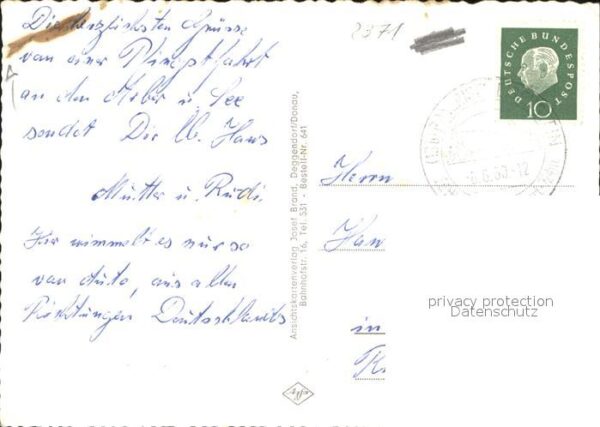 Die herzlichsten Grüsse
von einer Pfingstfahrt
an den Arber u. See
sendet Dir lb. Hans
Mutter u. Rudi.
Hier wimmelt es nur so
von Auto, aus allen
Richtungen Deutschlands
2371
DEUTSCHE BUNDESPOST
10
6.6.60-12
Ansichtskartenverlag Josef Brand, Deggendorf/Donau,
Bahnhofstr. 16, Tel. 531 - Bestell-Nr. 641
Herrn
Han
in
privacy protection
Datenschutz
Agfa